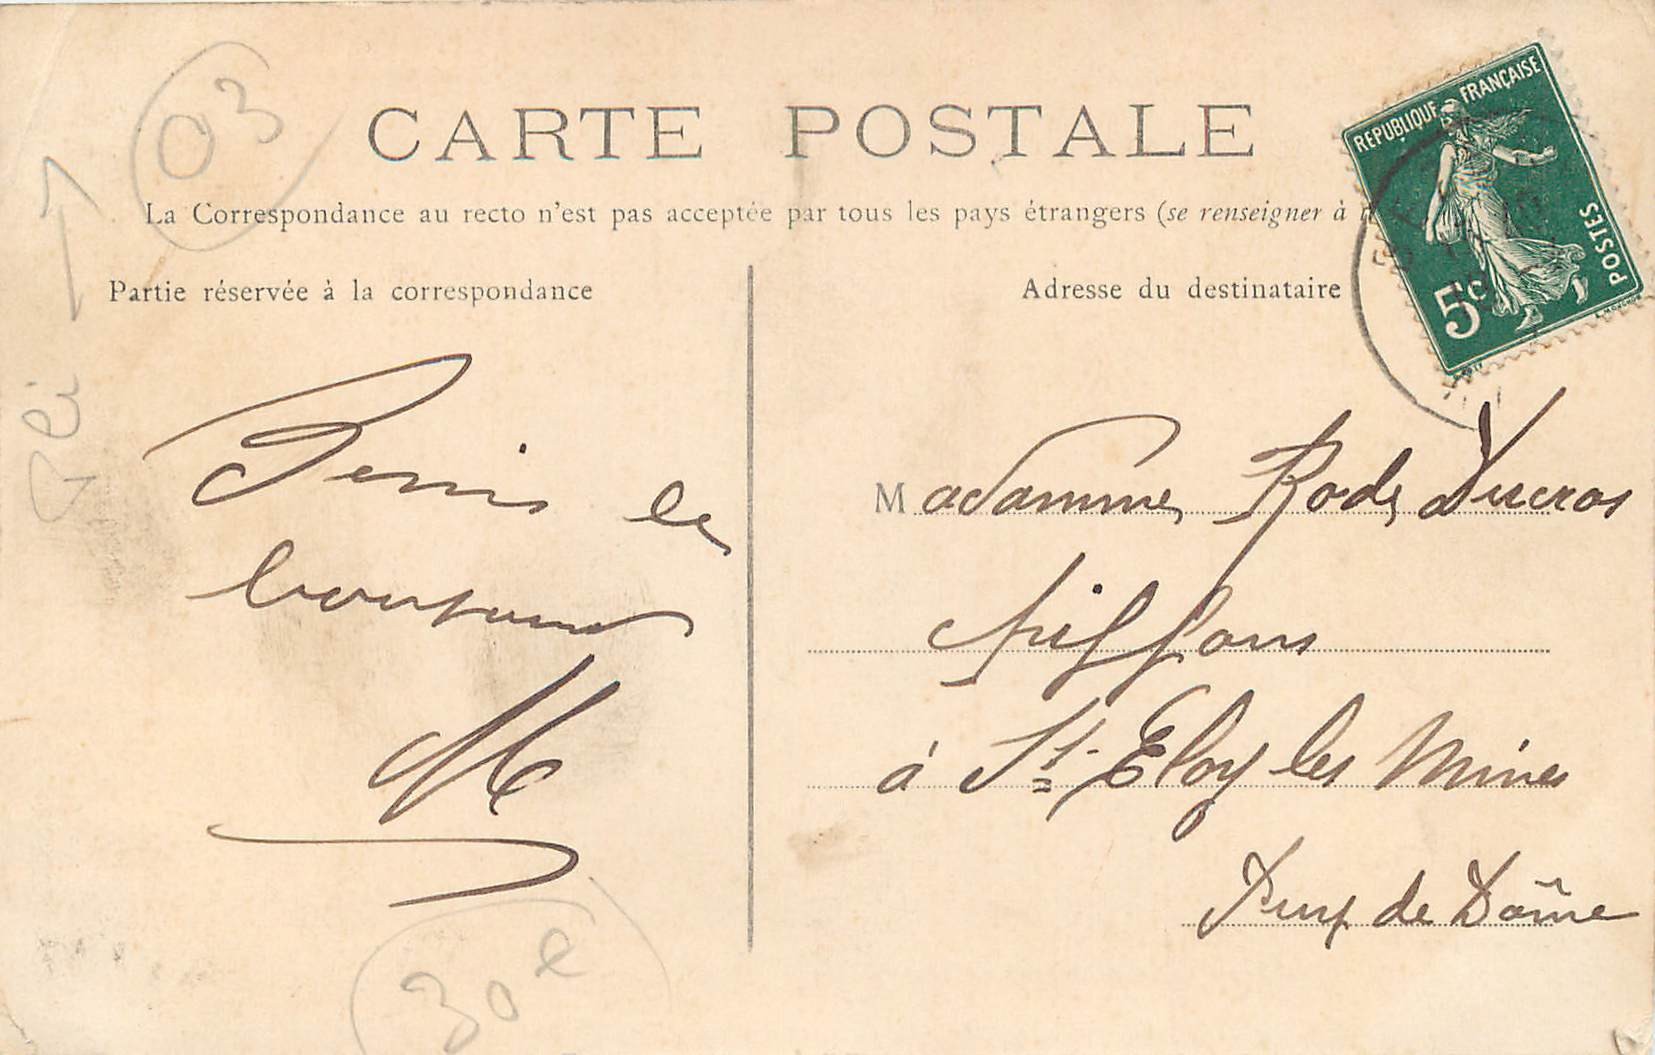 CARTE POSTALE
La Correspondance au recto n'est pas acceptée par tous les pays étrangers (se renseigner à
Partie réservée à la correspondance
Adresse du destinataire
REPUBLIQUE FRANÇAISE
POSTES
5c
03
Pli
le
Madamme Rode Ducros
chiffons
à St Eloy les Mines
Puy de Dôme
30€